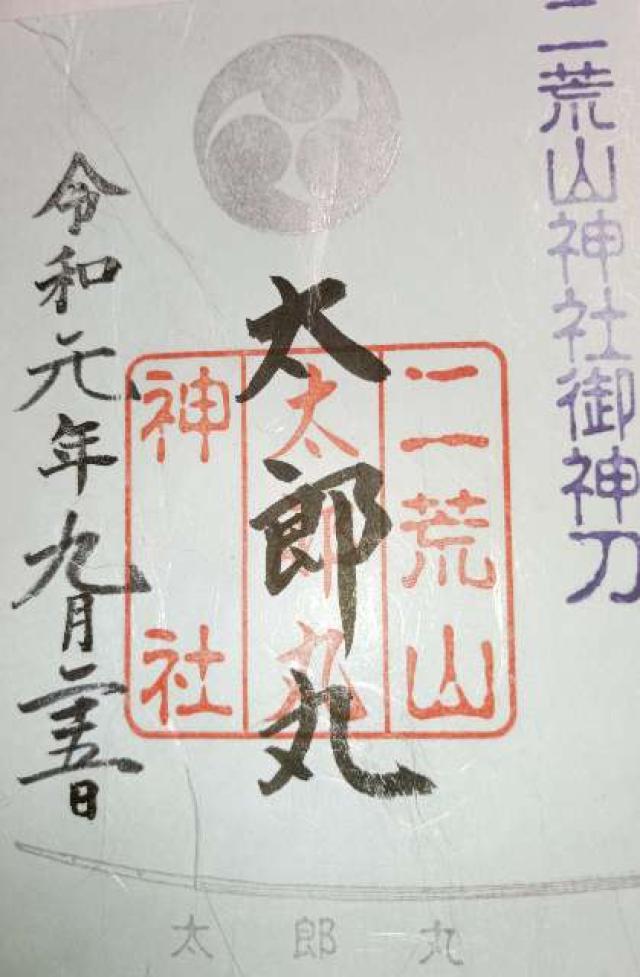 二荒山神社御神刀
太郎丸
二荒山
太郎丸
神社
令和元年九月二十五日
太郎丸